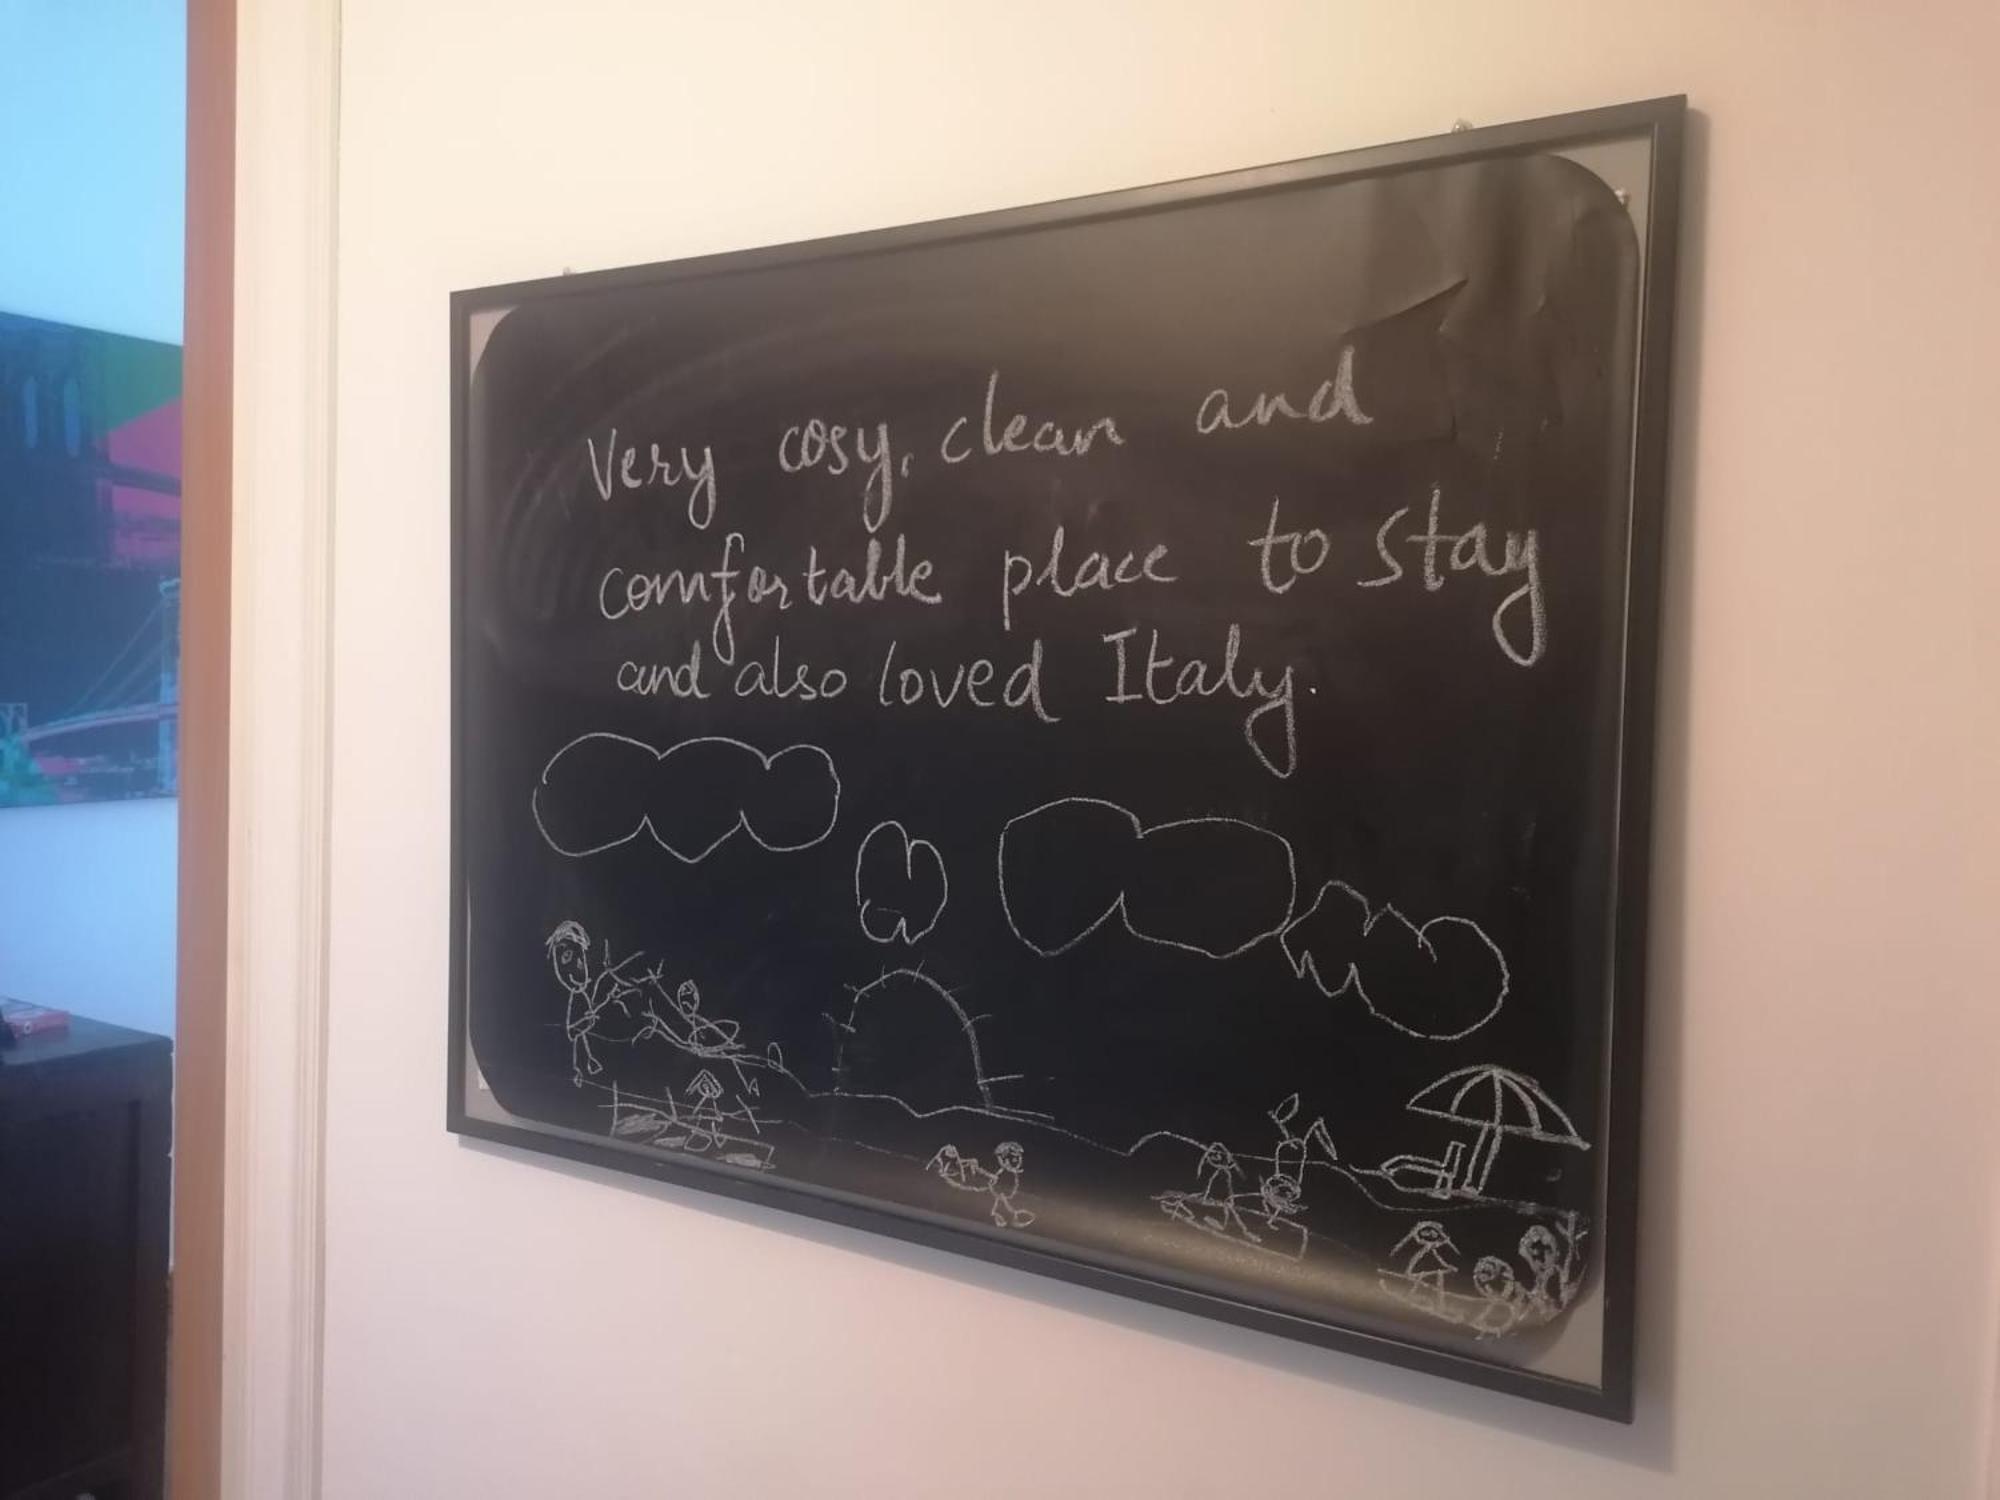 Very cosy, clean and
comfortable place to stay
and also loved Italy.